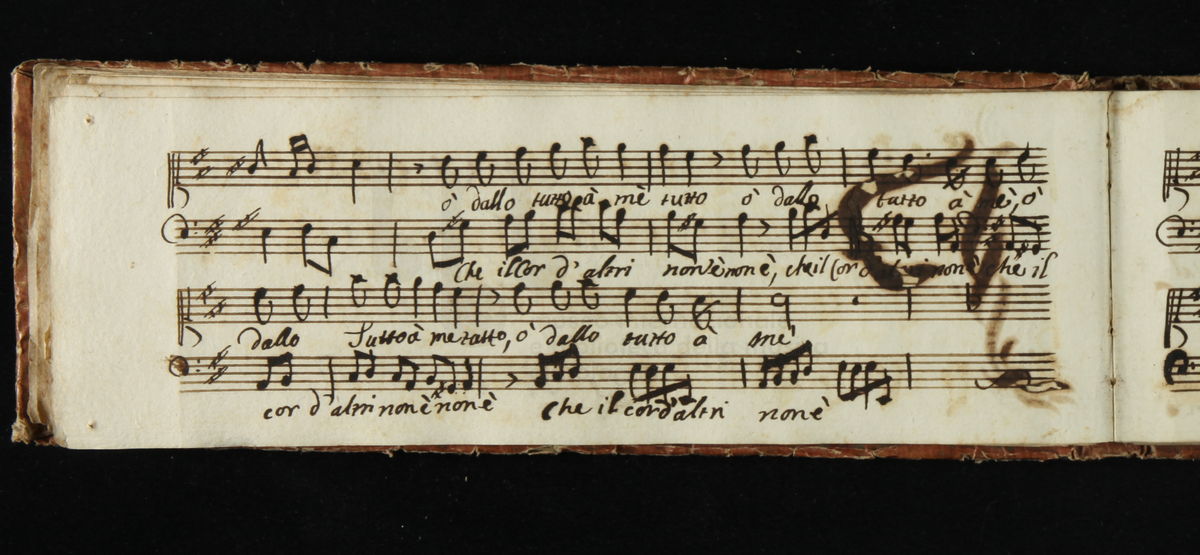 ò dallo tutto à mè tutto ò dallo tutto à mè, ò
Che il cor d'altri non'è non è, che il Cor d'altri non è che il
dallo Tutto à me tutto, ò dallo tutto à mè
cor d'altri non è non è Che il cor d'altri non è